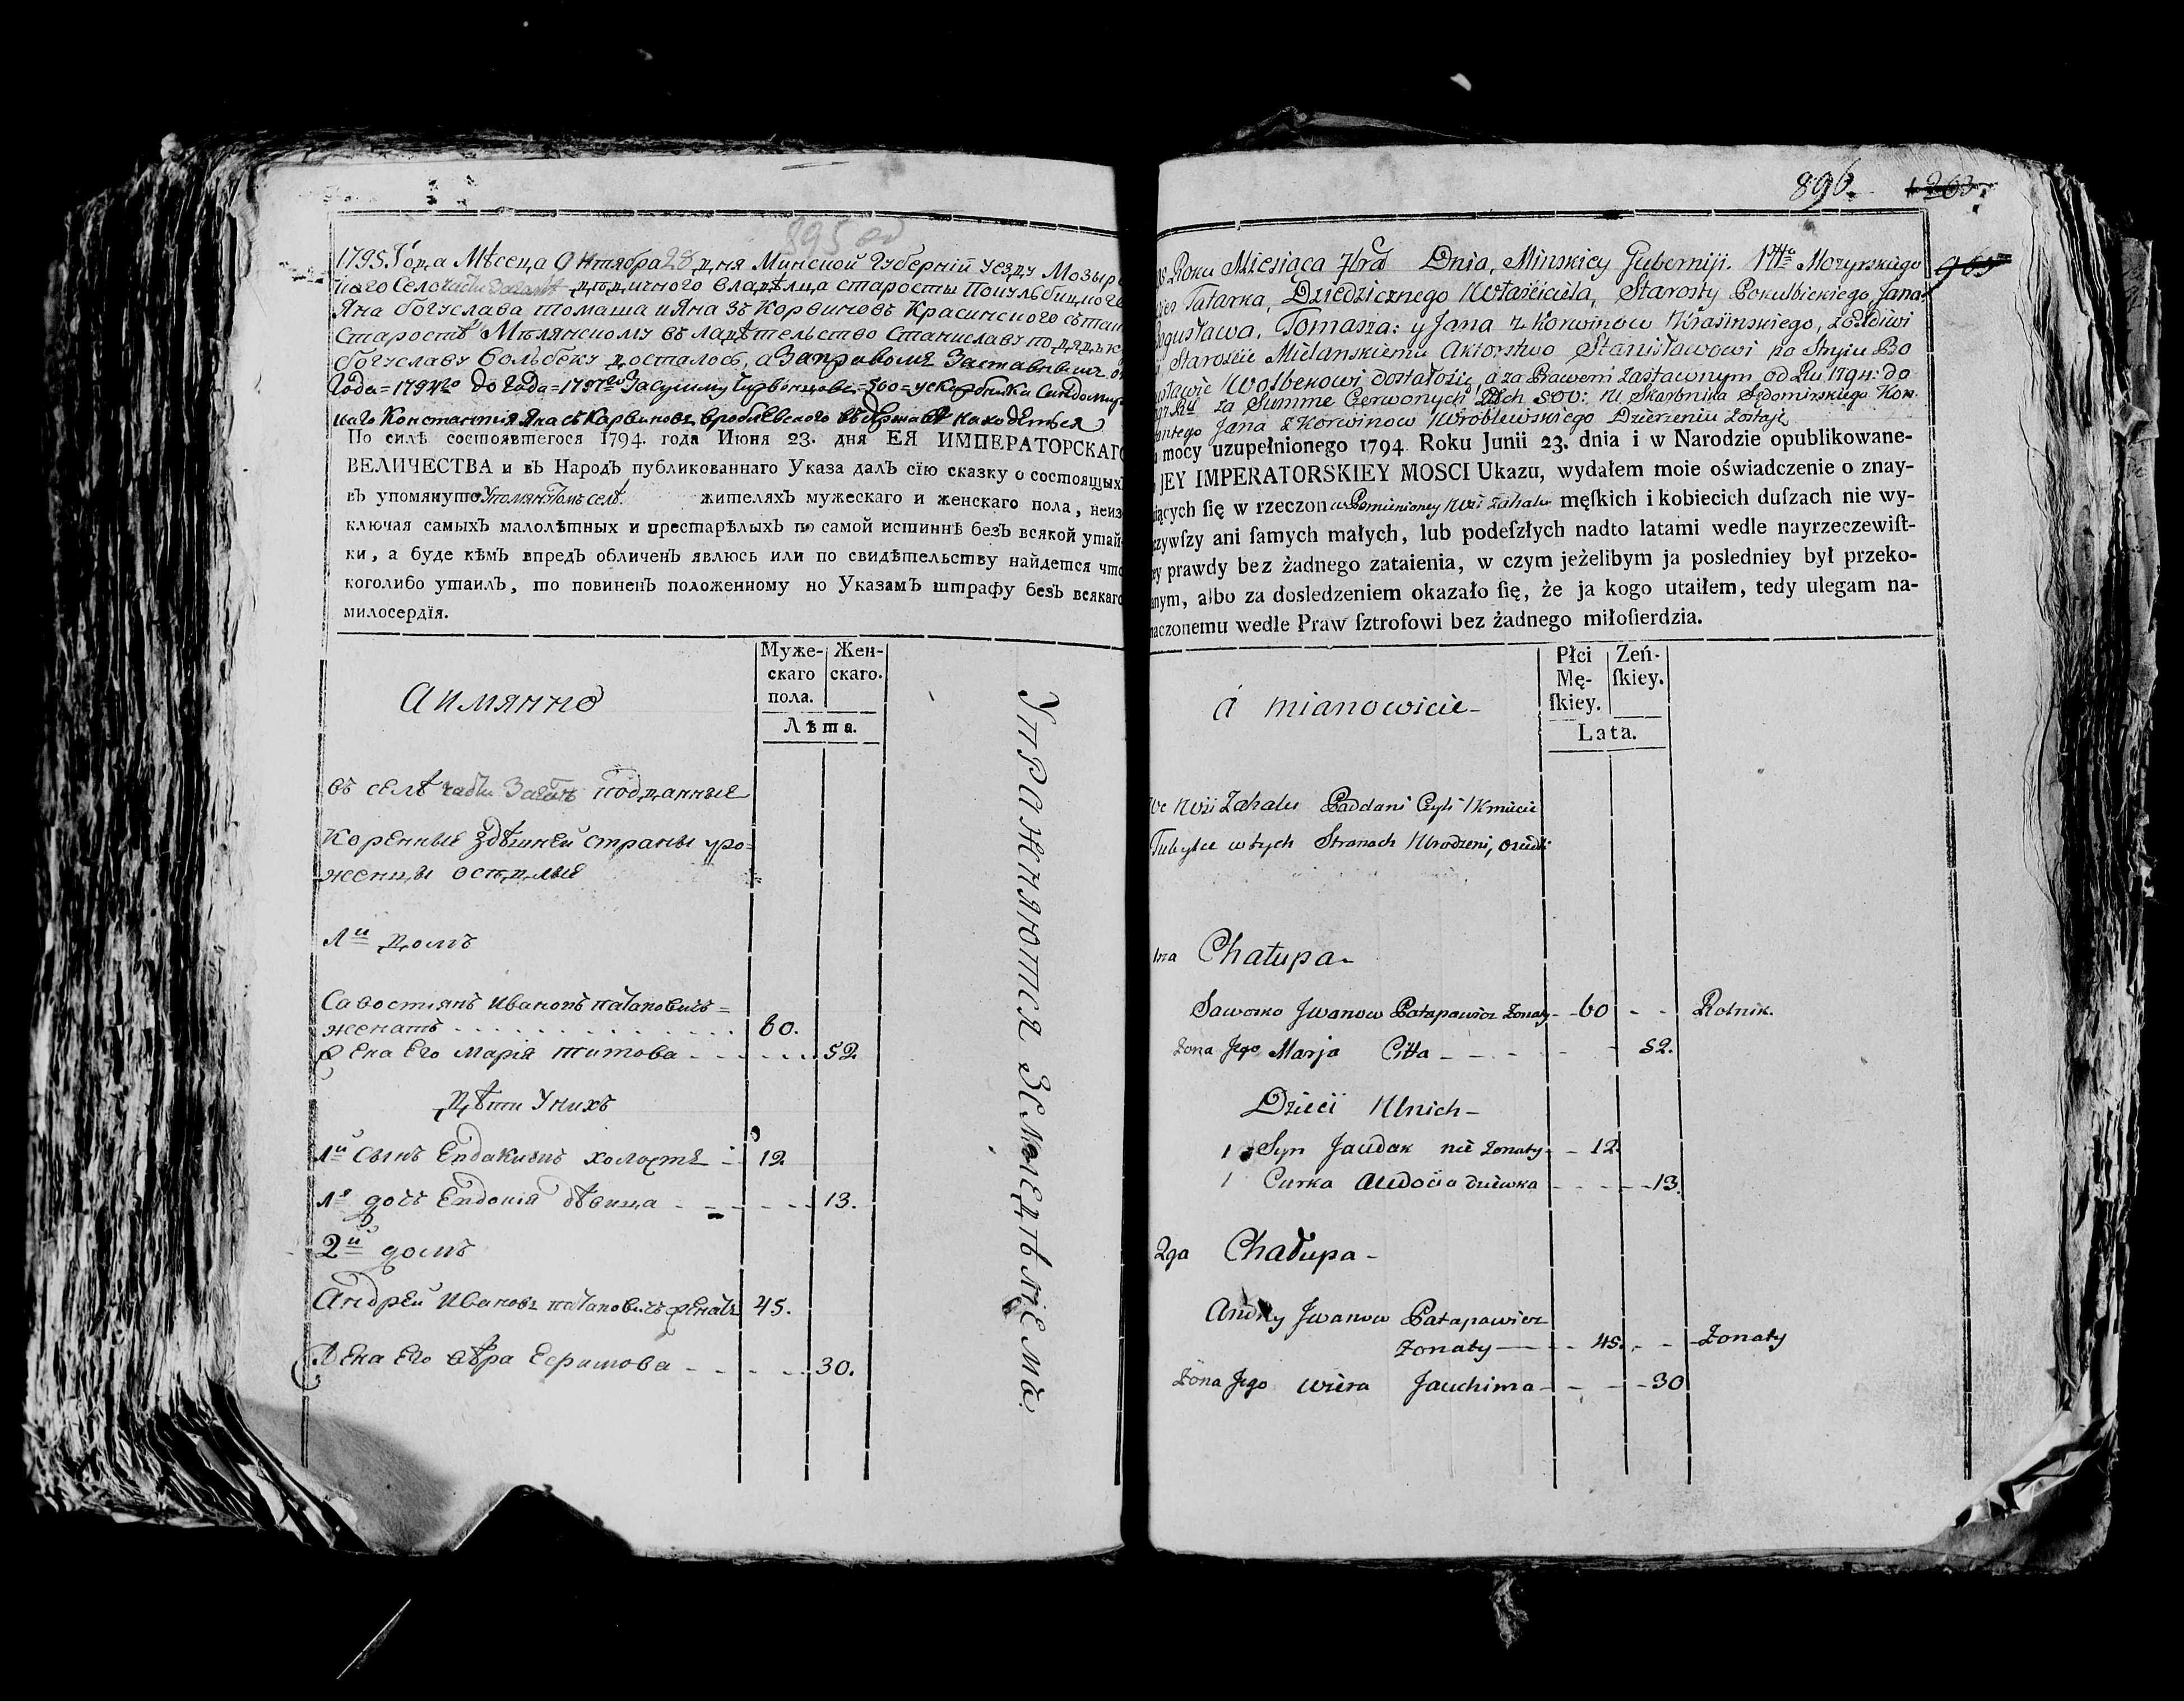 895 об
1795. Года Месеца Октября 28 дня Минской Губерній уезду Мозыр
ского Село части Загаля дедичного владелца старосты Покульбицкого
Яна богуслава томаша и Яна Зъ Корвиновъ Красинского
старостѣ Мѣлянскому въ Станиславу по
богуславу вольбеку досталось, а За правомъ Заставнымъ от
Года = 1794го до Года = 1797го За сумму Червонцовъ = 500 = у скарбника Сендомир
скаго Константія Яна съ Карвиновъ Вроблевского въ державѣ находеться
По силѣ состоявшегося 1794. года Июня 23. дня ЕЯ ИМПЕРАТОРСКАГО
ВЕЛИЧЕСТВА и въ Народъ публикованнаго Указа далъ сїю сказку о состоящыхъ
въ упомянуто Упомянутомъ селѣ жителяхъ мужескаго и женскаго пола, неиз
ключая самыхъ малолѣтныхъ и престарѣлыхъ по самой истиннѣ безъ всякой утай-
ки, а буде кѣмъ впредъ обличенъ явлюсь или по свидѣтельству найдется что
коголибо утаилъ, то повиненъ положенному по Указамъ штрафу безъ всякаго
милосердїя.
Муже-
скаго
пола.
Жен-
скаго.
Лѣта.
А имянно
въ селѣ части Загаля подданные
Коренные здѣшней страны уро=
женцы оседлые
1й домъ
Савостіянъ Ивановъ патаповичъ =
женатъ 60.
жена Его Марія титова 52
Дѣти У нихъ
1й Сынъ Евдакимъ холостъ 12
1я дочъ Евдокія дѣвица 13.
2й домъ
Андрей Ивановъ патаповичъ женатъ 45.
Жена Его вѣра Ефимова 30.
Упражняются Земледѣліемъ.
896. 1263.
965
Roku Miesiąca 7bra Dnia, Minskiey Guberniji. Pttu Mozyrskiego
Tatarka, Dziedzicznego Właściciela, Starosty Pokulbickiego Jana
Bogusława, Tomasza: y Jana z Korwinow Krasinskiego,
Staroscie Mielanskiemu Aktorstwo Stanisławowi po Stryiu Bo
gusławie Wolbekowi dostałosię, a za Prawem zastawnym od Ru 1794: do
1797 Ru za Summe Czerwonych Złłch 500: W. Skarbnika Sędomirskiego Kon.
stantego Jana z Korwinow Wroblewskiego Dzierzeniu zostaje
mocy uzupełnionego 1794 Roku Junii 23. dnia i w Narodzie opublikowane-
JEY IMPERATORSKIEY MOSCI Ukazu, wydałem moie oświadczenie o znay-
iących się w rzeczon w Pomienioney Wsi Zahalu męſkich i kobiecich duſzach nie wy-
czywſzy ani ſamych małych, lub podeſzłych nadto latami wedle nayrzeczewiſt-
ey prawdy bez żadnego zataienia, w czym jeżelibym ja posledniey był przeko-
anym, albo za dosledzeniem okazało ſię, że ja kogo utaiłem, tedy ulegam na-
naczonemu wedle Praw ſztrofowi bez żadnego miłoſierdzia.
Płci
Mę-
ſkiey.
Zeń-
ſkiey.
Lata.
á mianowicie -
We Wsi Zahalu Poddani Czyli Kmiecie
Tubylce w tych Stronach Urodzeni, osiedli
1na Chałupa -
Saworko Jwanow Patapowicz Zonaty 60 Rolnik.
Zona Jego Marja Citta 52.
Dzieci U nich -
1 Syn Jaudak nie zonaty 12
1 Curka Audocia dziewka 13.
2ga Chałupa -
Andrey Jwanow Patapowicz
Zonaty 45. Zonaty
Zona Jego wiera Jauchima 30